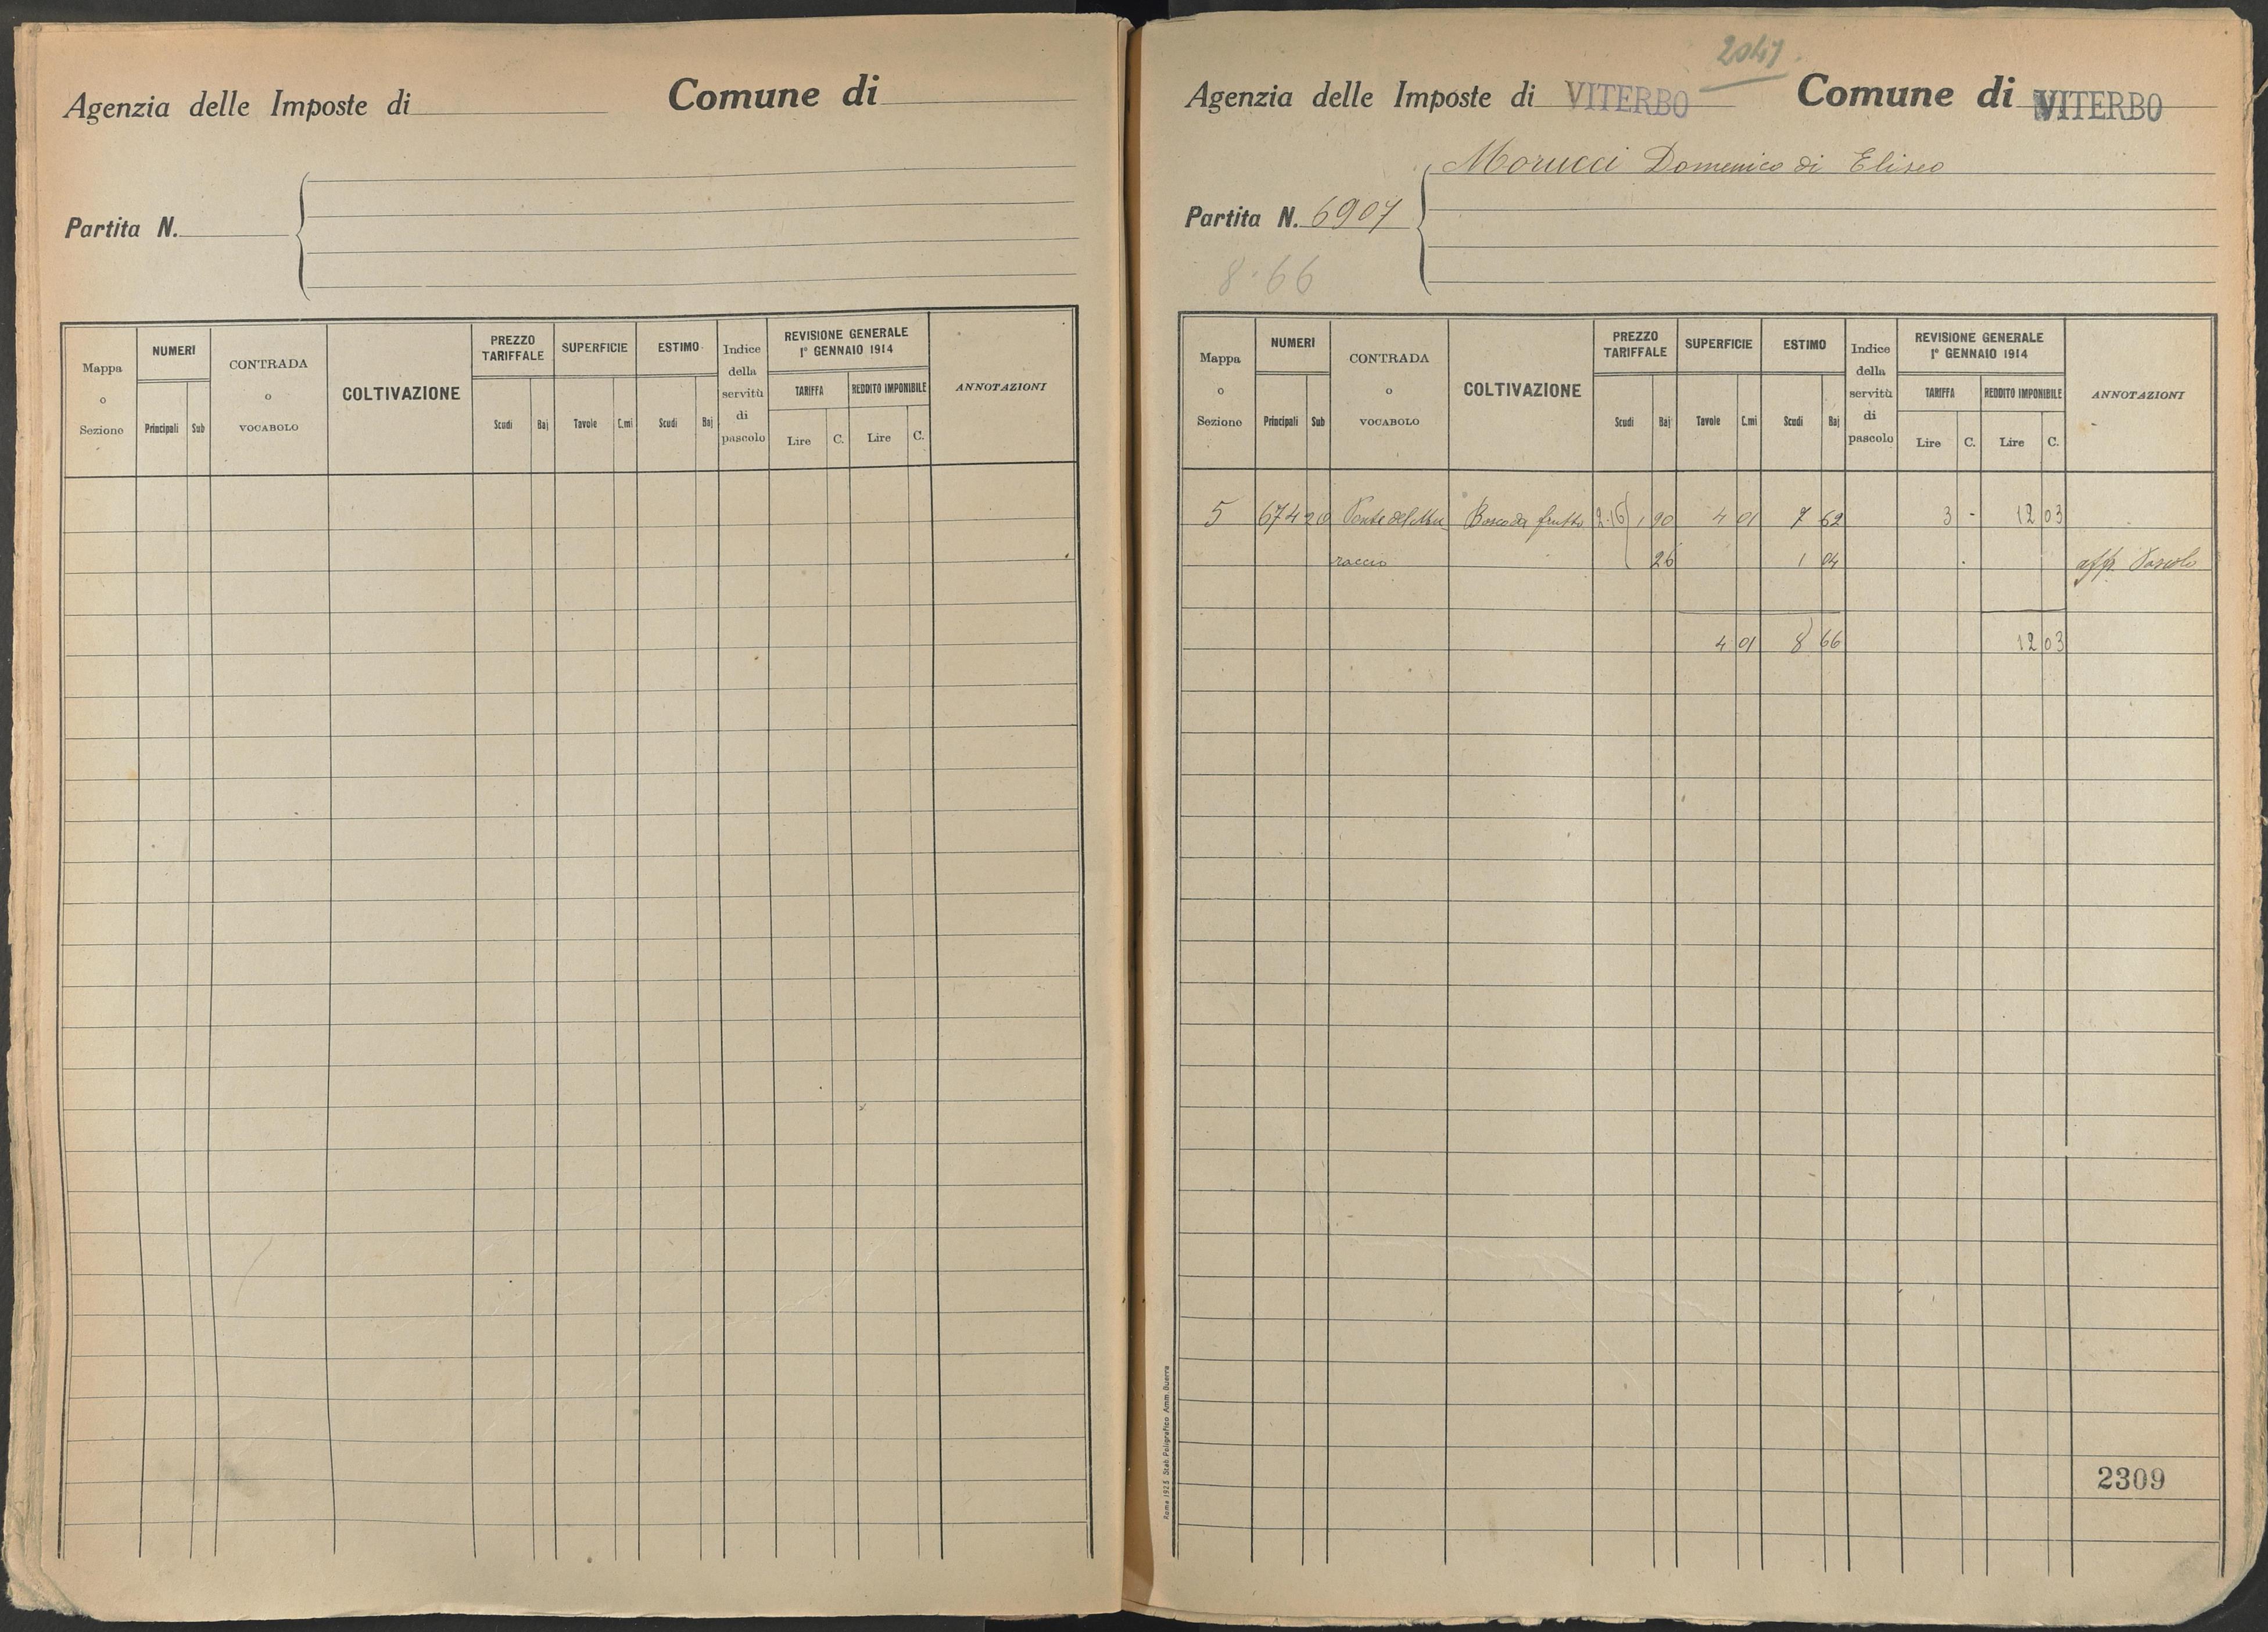 Agenzia delle Imposte di Comune di
Partita N.
Mappa o Sezione NUMERI CONTRADA o VOCABOLO COLTIVAZIONE PREZZO TARIFFALE SUPERFICIE ESTIMO Indice della servitù di pascolo REVISIONE GENERALE 1° GENNAIO 1914 ANNOTAZIONI
TARIFFA REDDITO IMPONIBILE
Principali Sub Scudi Baj Tavole C.mi Scudi Baj Lire C. Lire C.
2047
Agenzia delle Imposte di VITERBO Comune di VITERBO
Morucci Domenico di Eliseo
Partita N. 6907
8.66
Mappa o Sezione NUMERI CONTRADA o VOCABOLO COLTIVAZIONE PREZZO TARIFFALE SUPERFICIE ESTIMO Indice della servitù di pascolo REVISIONE GENERALE 1° GENNAIO 1914 ANNOTAZIONI
TARIFFA REDDITO IMPONIBILE
Principali Sub Scudi Baj Tavole C.mi Scudi Baj Lire C. Lire C.
5 674 20 Bosco da frutto 2.16 1 90 4 01 7 62 3 - 12 03
raccio 26 1 04 aff. Pascolo
4 01 8 66 12 03
2309
Roma 1925 Stab. Poligrafico Amm. Guerra